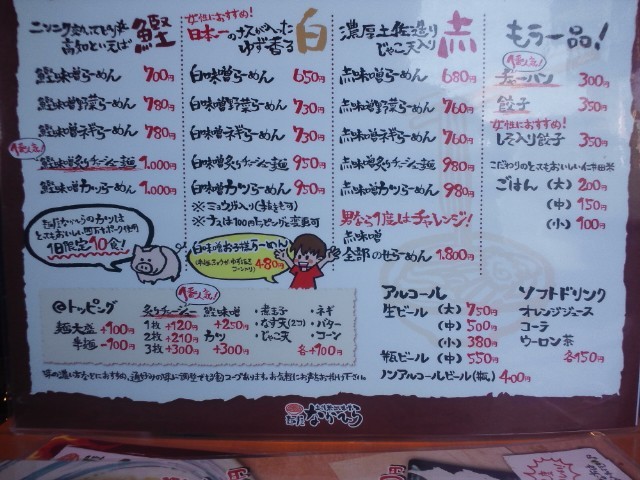 ニンニク
高知といえば 鰹
鰹味噌らーめん 700円
鰹味噌野菜らーめん 780円
鰹味噌ネギらーめん 780円
1番人気!
鰹味噌炙りチャーシュー麺 1,000円
鰹味噌カツらーめん 1,000円
1日限定10食!
女性におすすめ!
日本一のナスが入った
ゆず香る 白
白味噌らーめん 650円
白味噌野菜らーめん 730円
白味噌ネギらーめん 730円
白味噌炙りチャーシュー麺 950円
白味噌カツらーめん 950円
※ミョウガ入り(ぬきも可)
※ナスは100円トッピングに変更可
白味噌お子様らーめん
480円
濃厚土佐造り
じゃこ天入り 赤
赤味噌らーめん 680円
赤味噌野菜らーめん 760円
赤味噌ネギらーめん 760円
赤味噌炙りチャーシュー麺 980円
赤味噌カツらーめん 980円
男なら1度はチャレンジ!
赤味噌
全部のせらーめん 1,800円
もう一品!
1番人気!
チャーハン 300円
餃子 350円
女性におすすめ!
しそ入り餃子 350円
こだわりのとってもおいしい仁井田米
ごはん (大) 200円
(中) 150円
(小) 100円
@トッピング
麺大盛 +100円
半麺 -100円
1番人気!
炙りチャーシュー
1枚 +120円
2枚 +210円
3枚 +300円
鰹味噌
+250円
カツ
+300円
・煮玉子
・なす天(2コ)
・じゃこ天
・ネギ
・バター
・コーン
各+100円
アルコール
生ビール (大) 750円
(中) 500円
(小) 380円
瓶ビール (中) 550円
ノンアルコールビール(瓶) 400円
ソフトドリンク
オレンジジュース
コーラ
ウーロン茶
各150円